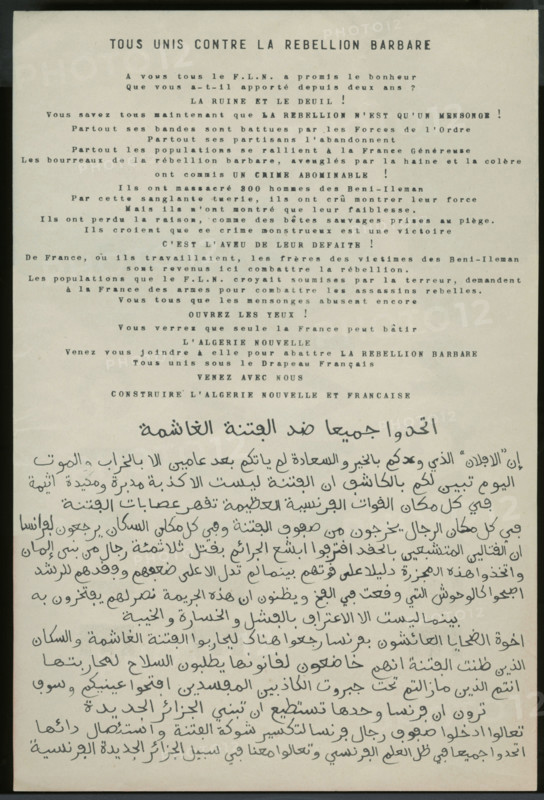 TOUS UNIS CONTRE LA REBELLION BARBARE
A vous tous le F.L.N. a promis le bonheur
Que vous a-t-il apporté depuis deux ans ?
LA RUINE ET LE DEUIL !
Vous savez tous maintenant que LA REBELLION N'EST QU'UN MENSONGE !
Partout ses bandes sont battues par les Forces de l'Ordre
Partout ses partisans l'abandonnent
Partout les populations se rallient à la France Généreuse
Les bourreaux de la rébellion barbare, aveuglés par la haine et la colère
ont commis UN CRIME ABOMINABLE !
Ils ont massacré 300 hommes des Beni-Ileman
Par cette sanglante tuerie, ils ont crû montrer leur force
Mais ils n'ont montré que leur faiblesse.
Ils ont perdu la raison, comme des bêtes sauvages prises au piège.
Ils croient que ce crime monstrueux est une victoire
C'EST L'AVEU DE LEUR DEFAITE !
De France, où ils travaillaient, les frères des victimes des Beni-Ileman
sont revenus ici combattre la rébellion.
Les populations que le F.L.N. croyait soumises par la terreur, demandent
à la France des armes pour combattre les assassins rebelles.
Vous tous que les mensonges abusent encore
OUVREZ LES YEUX !
Vous verrez que seule la France peut bâtir
L'ALGERIE NOUVELLE
Venez vous joindre à elle pour abattre LA REBELLION BARBARE
Tous unis sous le Drapeau Français
VENEZ AVEC NOUS
CONSTRUIRE L'ALGERIE NOUVELLE ET FRANCAISE
اتحدوا جميعا ضد الفتنة الغاشمة
إن "الافلان" الذي وعدكم بالخير والسعادة لم ياتكم بعد عامين الا بالخراب والموت
اليوم تبين لكم بالكاشف ان الفتنة ليست الا كذبة مدبرة ومكيدة اثيمة
في كل مكان القوات الفرنسية العظيمة تقهر عصابات الفتنة
في كل مكان الرجال يخرجون من صفوف الفتنة وفي كل مكان السكان يرجعون لفرانسا
ان القتالين المتشبعين بالحقد اقترفوا ابشع الجرائم بقتل ثلاثمئة رجال من بني إلمان
واتخذوا هذه المجزرة دليلا على قوتهم بينما لم تدل الا على ضعفهم وفقدهم للرشد
اصبحوا كالوحوش التي وقعت في الفخ ويظنون ان هذه الجريمة نصر لهم يفتخرون به
بينما ليست الا الاعتراف بالفشل والخسارة والخيبة
اخوة الضحايا العائشون بفرنسا رجعوا هناك ليحاربوا الفتنة الغاشمة والسكان
الذين ظنت الفتنة انهم خاضعون لقانونها يطلبون السلاح لمحاربتها
انتم الذين مازالتم تحت جبروت الكاذبين المفسدين افتحوا عينيكم وسوف
ترون ان فرنسا وحدها تستطيع ان تبني الجزائر الجديدة
تعالوا ادخلوا صفوف رجال فرنسا لتكسير شوكة الفتنة واستئصال دائها
اتحدوا جميعا في ظل العلم الفرنسي وتعالوا معنا في سبيل الجزائر الجديدة الفرنسية